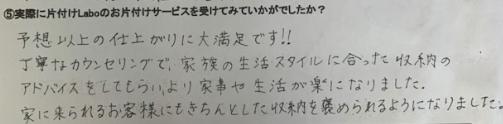 ⑤実際に片付けLaboのお片付けサービスを受けてみていかがでしたか？
予想以上の仕上がりに大満足です!!
丁寧なカウンセリングで、家族の生活スタイルに合った収納の
アドバイスをしてもらい、より家事や生活が楽になりました.
家に来られるお客様にもきちんとした収納を褒められるようになりました。